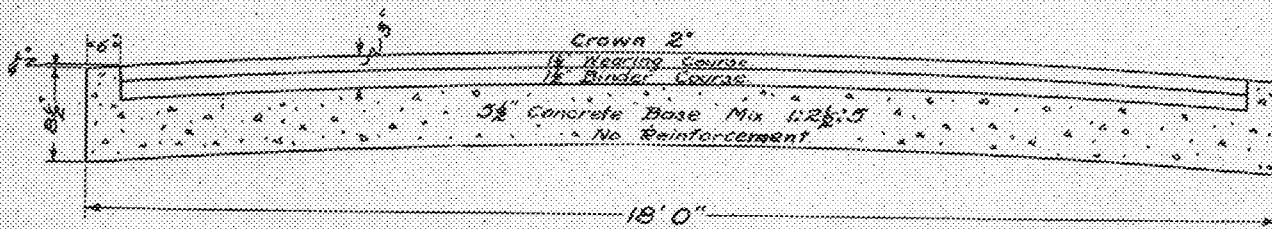 Crown 2"
1½" Wearing Course
1½" Binder Course
5½" Concrete Base Mix 1:2½:5
No Reinforcement
6"
8½"
18' 0"